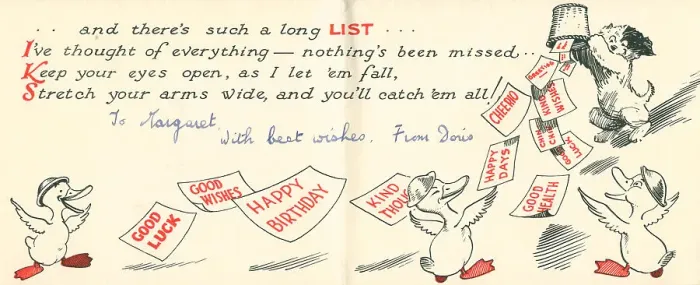 . . and there's such a long LIST . . .
I've thought of everything — nothing's been missed...
Keep your eyes open, as I let 'em fall,
Stretch your arms wide, and you'll catch 'em all!
To Margaret
With best wishes. From Doris
GREETINGS
CHEERIO
KIND
WISHES
CHIN
CHIN
GOOD
LUCK
HAPPY
DAYS
GOOD
HEALTH
KIND
THOU
HAPPY
BIRTHDAY
GOOD
WISHES
GOOD
LUCK